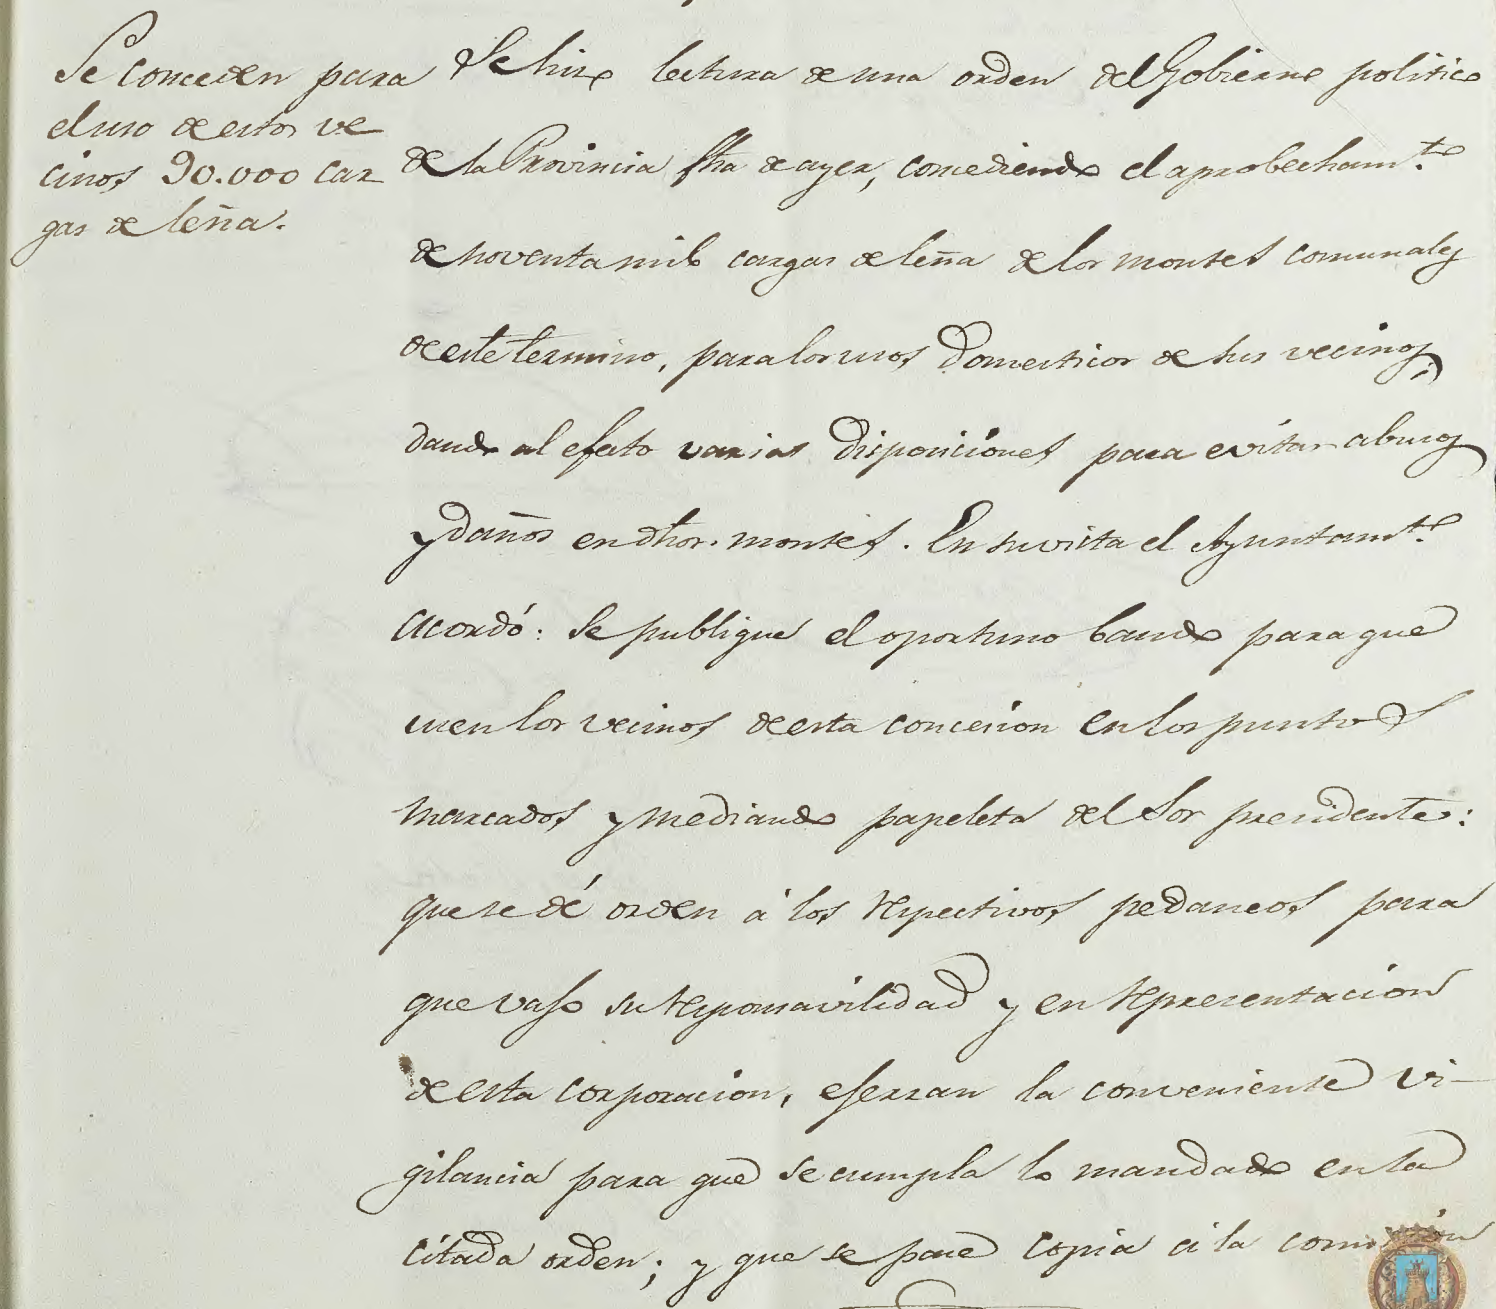 Se conceden para
el uso de estos ve
cinos 90.000 car
gas de leña.
Se hizo lectura de una orden del Gobierno politico
de la Provincia fha de ayer, concediendo el aprobecham.to
de noventa mil cargas de leña de los montes comunales
de este termino, para los usos domesticos de sus vecinos;
dando al efecto varias disposiciones para evitar abusos
y daños en dhos. montes. En su vista el Ayuntam.to
acordó: Se publique el oportuno bando para que
usen los vecinos de esta concesion en los puntos
marcados y mediando papeleta del Sor presidente:
que se dé orden á los respectivos pedaneos para
que vajo su responsavilidad y en representacion
de esta corporacion, ejerzan la conveniente vi-
gilancia para que se cumpla lo mandado en la
citada orden; y que se pase copia á la comision